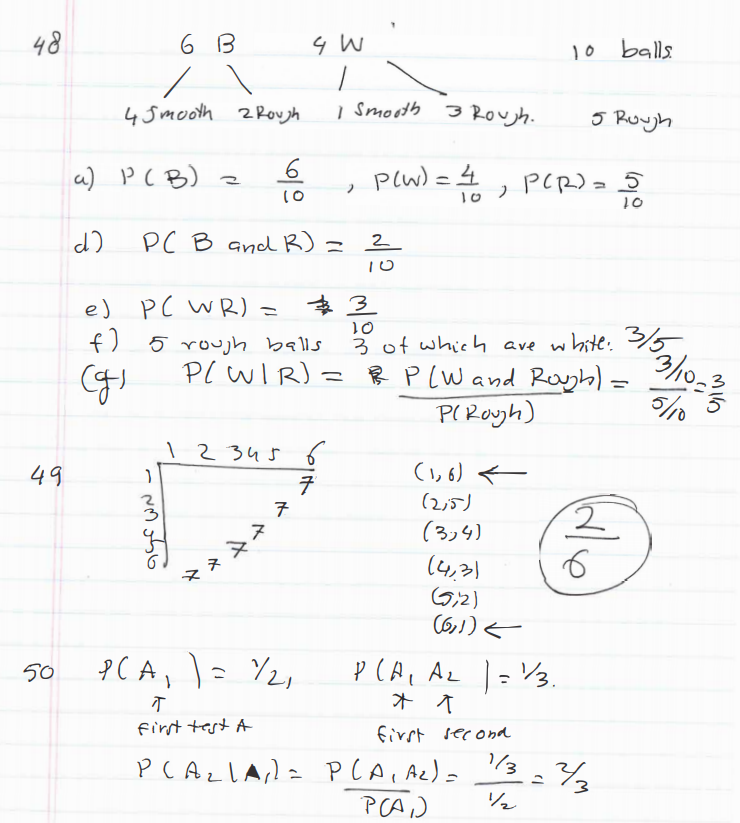 48 6 B 4 W 10 balls.
4 Smooth 2 Rough 1 Smooth 3 Rough. 5 Rough
a) P(B) = 6/10 , P(W) = 4/10 , P(R) = 5/10
d) P( B and R) = 2/10
e) P( WR) = 3/10
f) 5 rough balls 3 of which are white: 3/5
(g) P( W | R) = P(W and Rough)/P(Rough) = 3/10 / 5/10 = 3/5
49 1 2 3 4 5 6
1 7 (1,6) ←
2 7 (2,5)
3 7 (3,4) 2/6
4 7 (4,3)
5 7 (5,2)
6 7 (6,1) ←
50 P(A1) = 1/2, P(A1 A2) = 1/3.
↑ ↑ ↑
first test A first second
P(A2|A1) = P(A1 A2)/P(A1) = 1/3 / 1/2 = 2/3